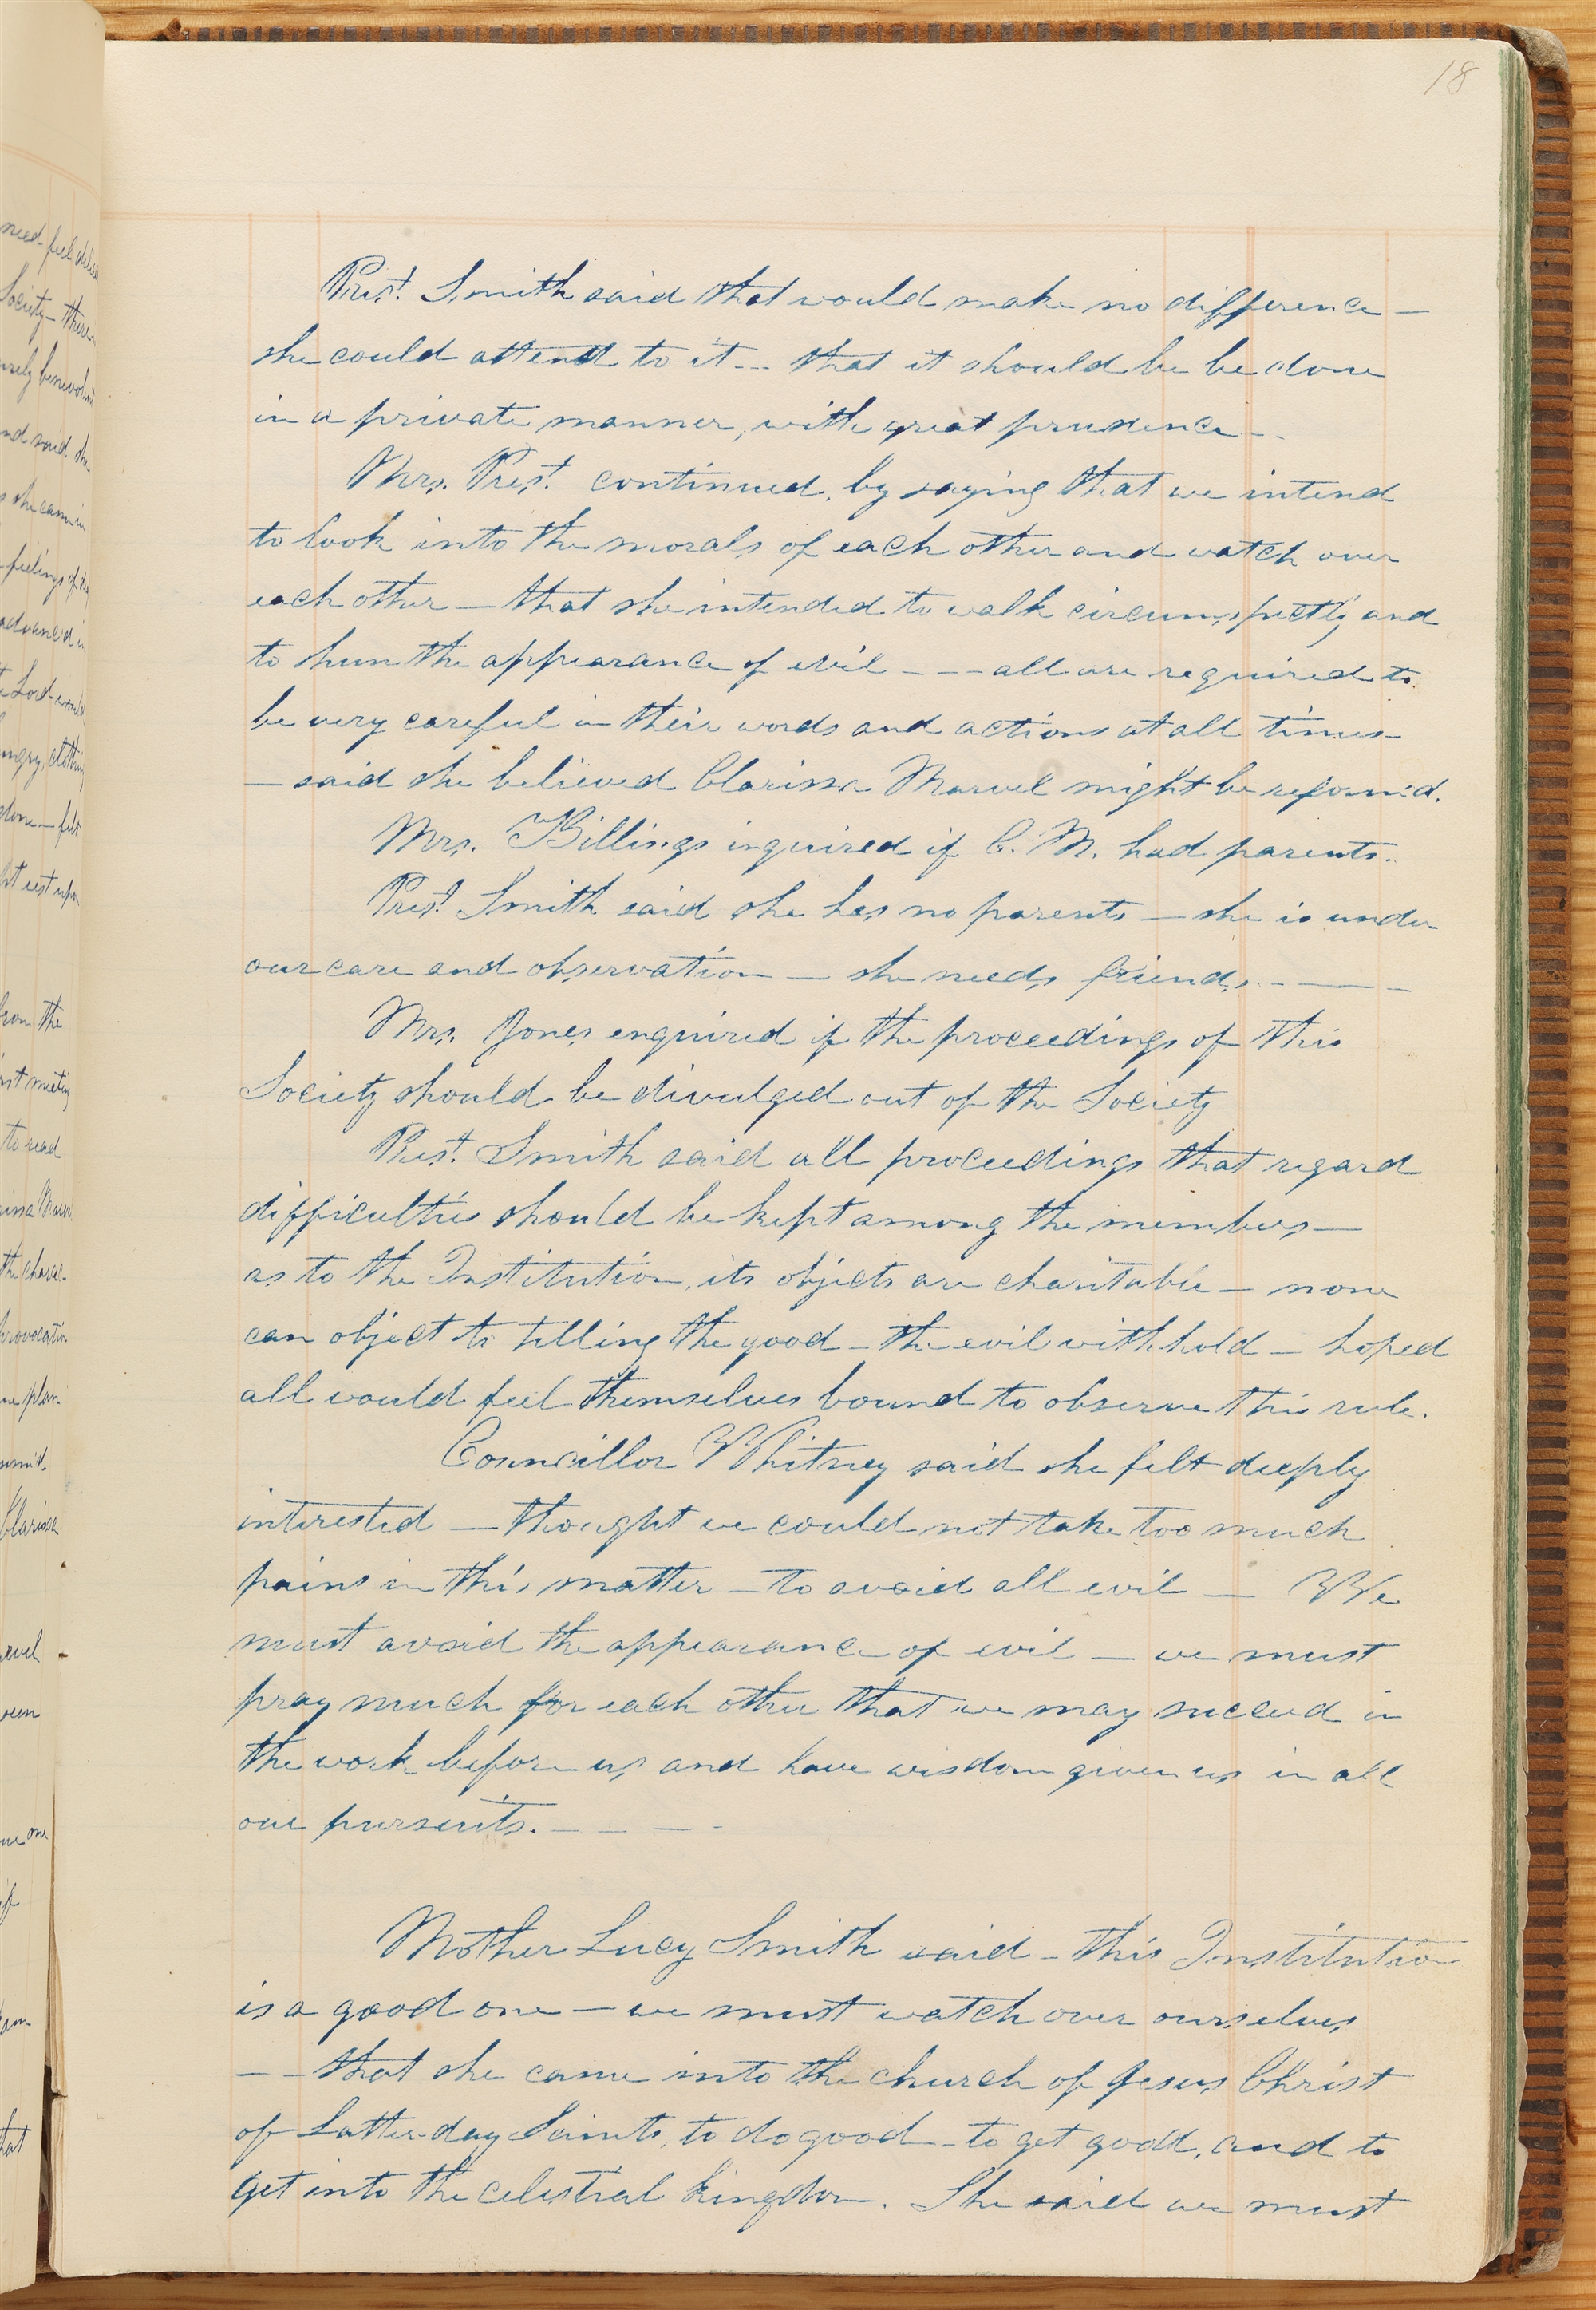 18
Prest. Smith said that would make no difference —
she could attend to it -- that it should be be done
in a private manner, with great prudence --
Mrs. Prest. continued, by saying that we intend
to look into the morals of each other and watch over
each other — that she intended to walk circumspectly and
to shun the appearance of evil — — all are required to
be very careful in their words and actions at all times —
— said she believed Clarissa Marvel might be reform'd.
Mrs. Billings inquired if C. M. had parents.
Prest. Smith said she has no parents — she is under
our care and observation — she needs friends. — — —
Mrs. Jones enquired if the proceedings of this
Society should be divulged out of the Society
Prest. Smith said all proceedings that regard
difficulties should be kept among the members —
as to the Institution, its objects are charitable — none
can object to telling the good — the evil withhold — hoped
all would feel themselves bound to observe this rule.
Councillor Whitney said she felt deeply
interested — thought we could not take too much
pains in this matter — to avoid all evil — We
must avoid the appearance of evil — we must
pray much for each other that we may succeed in
the work before us, and have wisdom given us in all
our pursuits. — — — -
Mother Lucy Smith said — this Institution
is a good one — we must watch over ourselves
— — that she came into the church of Jesus Christ
of Latter-day Saints, to do good — to get good, and to
get into the celestial kingdom. She said we must